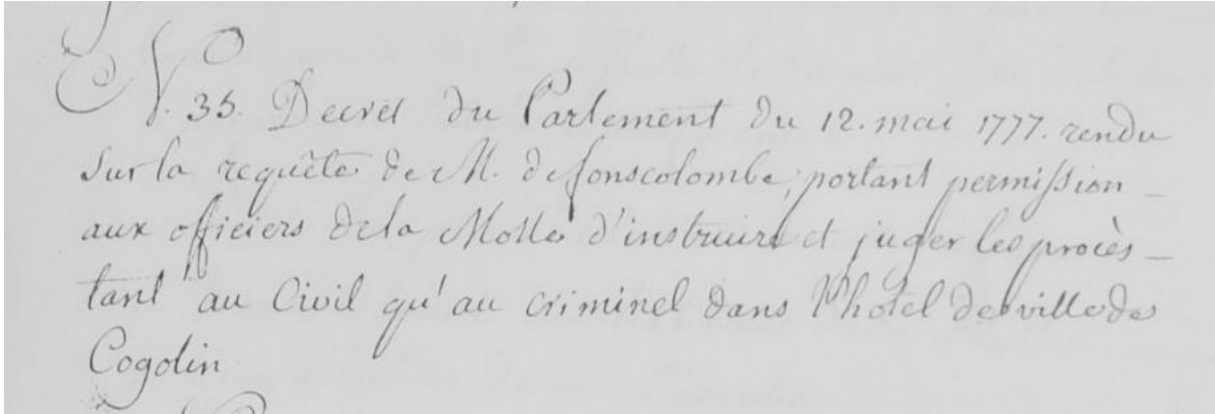 N.° 35. Decret du Parlement du 12. mai 1777. rendu
Sur la requête de M. de fonscolombe, portant permission
aux officiers de la Motte d'instruire et juger les procès
tant au Civil qu'au criminel dans l'hotel de ville de
Cogolin